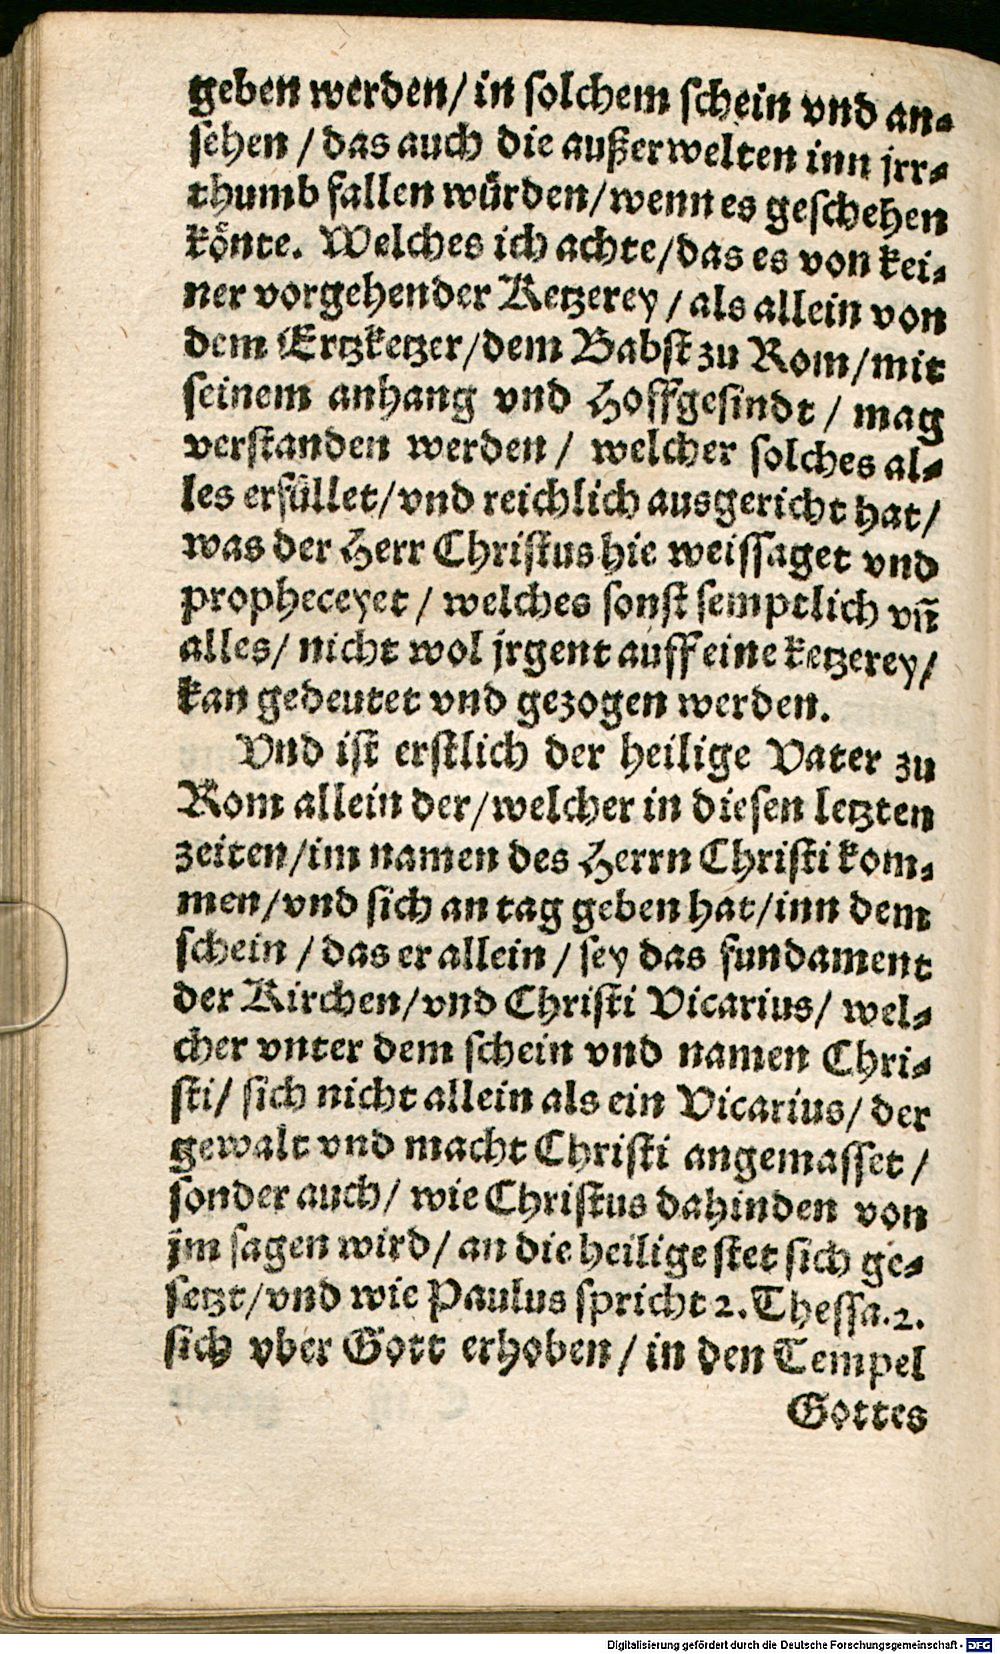 geben werden/ in solchem schein vnd an-
sehen / das auch die außerwelten inn jrr-
thumb fallen würden/ wenn es geschehen
könte. Welches ich achte/ das es von kei-
ner vorgehender Ketzerey / als allein von
dem Ertzketzer/ dem Babst zu Rom/ mit
seinem anhang vnd Hoffgesindt / mag
verstanden werden / welcher solches al-
les erfüllet/ vnd reichlich ausgericht hat/
was der Herr Christus hie weissaget vnd
propheceyet / welches sonst semptlich vñ
alles/ nicht wol jrgent auff eine ketzerey/
kan gedeutet vnd gezogen werden.
Vnd ist erstlich der heilige Vater zu
Rom allein der/ welcher in diesen letzten
zeiten/ im namen des Herrn Christi kom-
men/ vnd sich an tag geben hat/ inn dem
schein / das er allein / sey das fundament
der Kirchen/ vnd Christi Vicarius/ wel-
cher vnter dem schein vnd namen Chri-
sti/ sich nicht allein als ein Vicarius/ der
gewalt vnd macht Christi angemasset /
sonder auch/ wie Christus dahinden von
jm sagen wird/ an die heilige stet sich ge-
setzt/ vnd wie Paulus spricht 2. Thessa. 2.
sich vber Gott erhoben / in den Tempel
Gottes
Digitalisierung gefördert durch die Deutsche Forschungsgemeinschaft - DFG